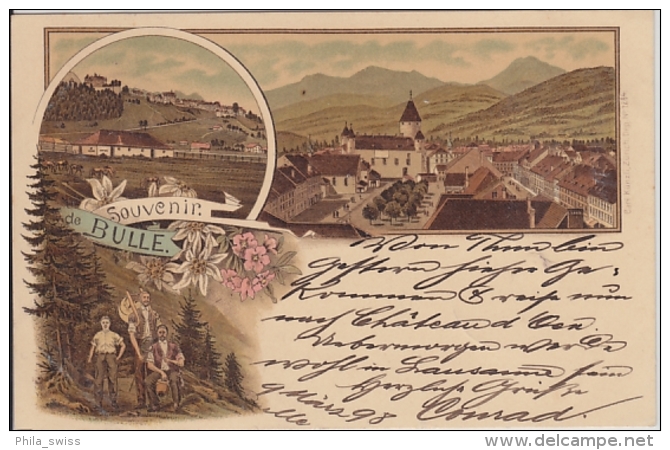 Souvenir.
de BULLE.
Von Thun bin
gestern hieher ge-
kommen & reise nun
nach Château d'Oex.
Uebermorgen werde
wohl in Lausanne sein
Herzliche Grüße
9 März 98 Conrad.
Phila_swiss
www.delcampe.net